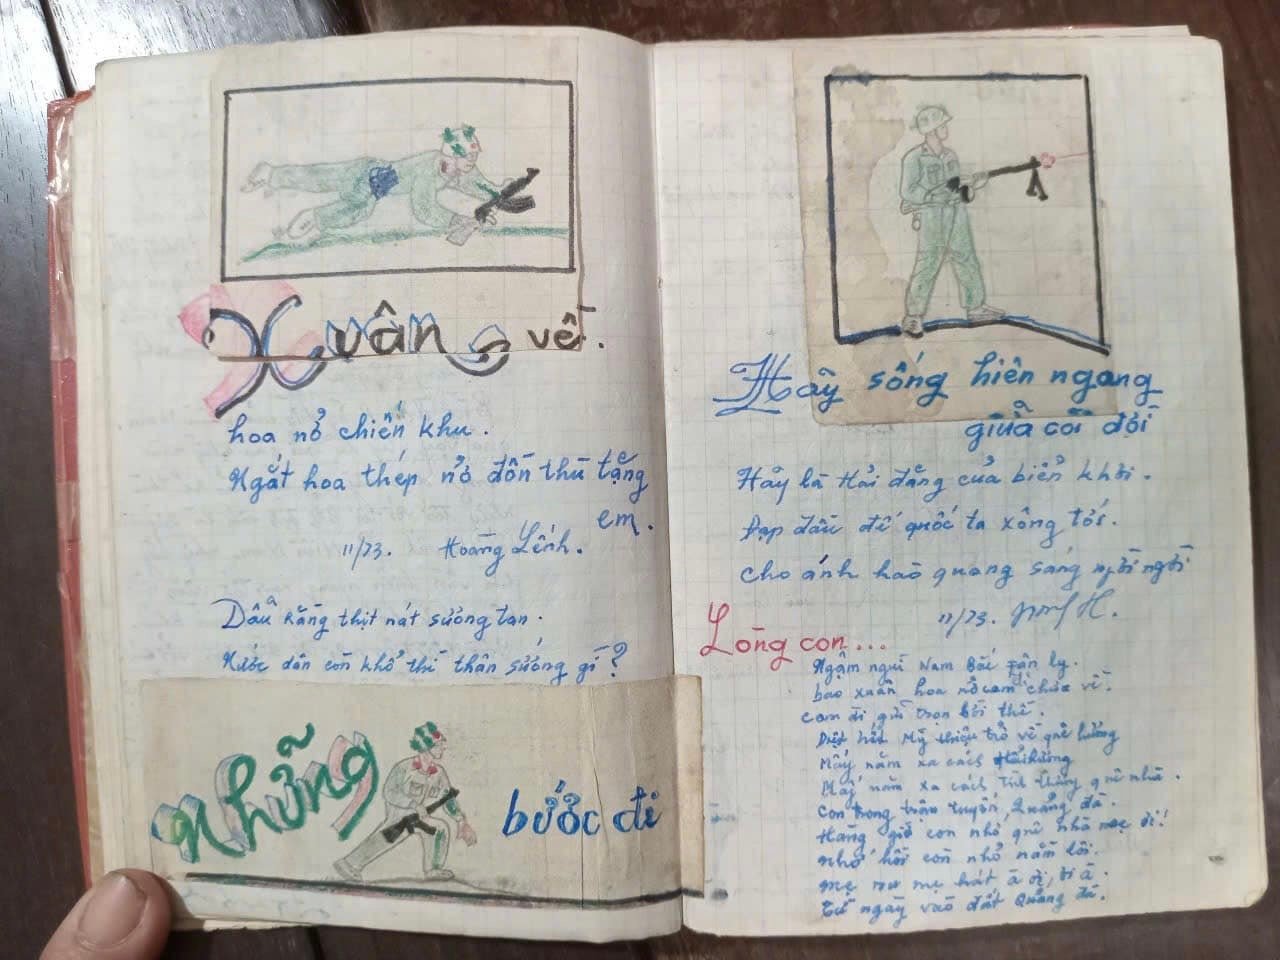 Xuân về.
hoa nở chiến khu.
Ngắt hoa thép nở đồn thù tặng
em.
11/73. Hoàng Lênh.
Dẫu rằng thịt nát sương tan.
Nước dân còn khổ thì thân sướng gì?
Những bước đi
Hãy sống hiên ngang
giữa cõi đời
Hãy là Hải đăng của biển khơi.
Đạp đầu đế quốc ta xông tới.
cho ánh hào quang sáng ngời ngời
11/73.
Lòng con...
Ngậm ngùi Nam Bắc phân ly.
bao xuân hoa nở cam chưa về.
con đi gửi trọn lời thề.
Diệt hết Mỹ thiệu trở về quê hương
Mấy năm xa cách
Mấy năm xa cách quê nhà.
Con trong trận tuyến Quảng đà.
Hàng giờ con nhớ quê nhà mẹ ơi!
Nhớ hồi còn nhỏ nằm lôi.
mẹ ru mẹ hát à ơi, ới à.
Từ ngày vào đất Quảng đà.